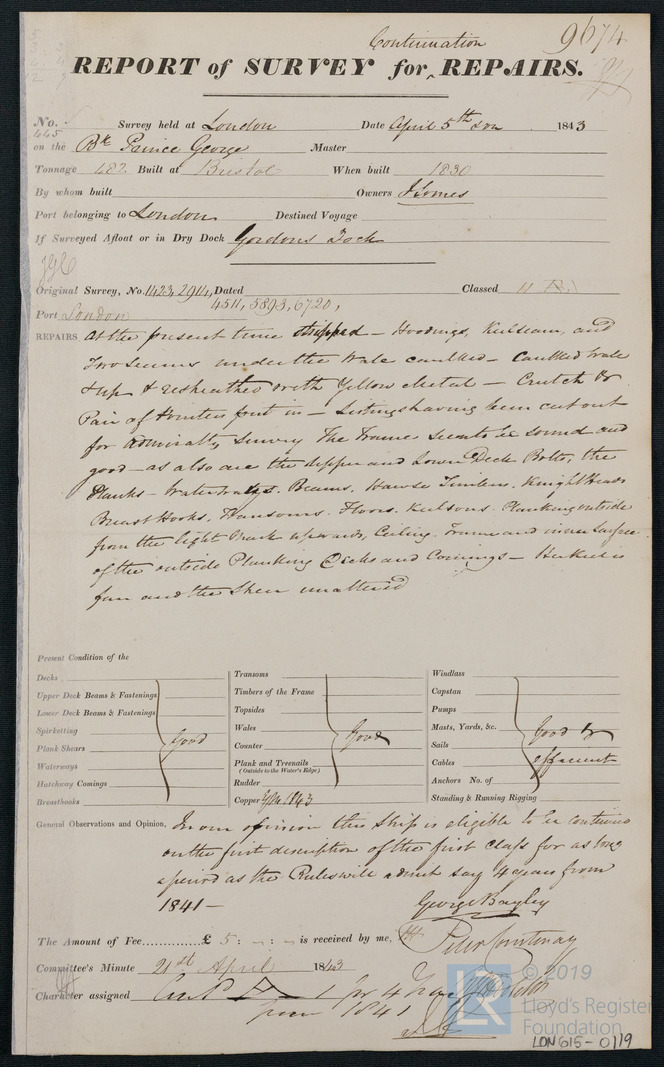 Continuation
9674
REPORT of SURVEY for REPAIRS.
No. 445 Survey held at London Date April 5th 1843
on the Bk Prince George Master
Tonnage 482 Built at Bristol When built 1830
By whom built Owners
Port belonging to London Destined Voyage
If Surveyed Afloat or in Dry Dock Gordons Dock
Original Survey, No. 1423, 2914, Dated Classed
4511, 5893, 6720,
Port London
REPAIRS At the present time stripped – Hoodings, Keelseam, and
Two Seams under the Wale caulked – Caulked Wale
& up & resheathed with Yellow Metal – Crutch &
Pair of Pointers put in – Listings having been cut out
for Admiralty Survey The Frame seems to be sound and
good – as also are the Upper and Lower Deck Bolts, the
Planks – Waterways. Beams. Hawse Timbers. Knight Heads
Breast Hooks. Transoms. Floors. Keelsons. Planking outside
from the light mark upwards, Ceiling. Frame and inner surface
of the outside Planking Decks and Comings – Her Keel is
fair and the Sheer unaltered
Present Condition of the
Decks
Upper Deck Beams & Fastenings
Lower Deck Beams & Fastenings
Spirketting
Plank Shears
Waterways
Hatchway Comings
Breasthooks
Good
Transoms
Timbers of the Frame
Topsides
Wales
Counter
Plank and Treenails
(Outside to the Water's Edge)
Rudder
Copper YM 1843
Good
Windlass
Capstan
Pumps
Masts, Yards, &c.
Sails
Cables
Anchors No. of
Standing & Running Rigging
Good &
efficient
General Observations and Opinion, In our opinion this Ship is eligible to be continued
on the first description of the first Class for as long
a period as the Rules will admit say 4 years from
1841 –
George Bayley
The Amount of Fee £ 5 : – : – is received by me,
Peter Courtenay
Committee's Minute 21st April 1843
Character assigned A 1 for 4 Years
from 1841
LR © 2019
Lloyd's Register
Foundation
LDN615-0119